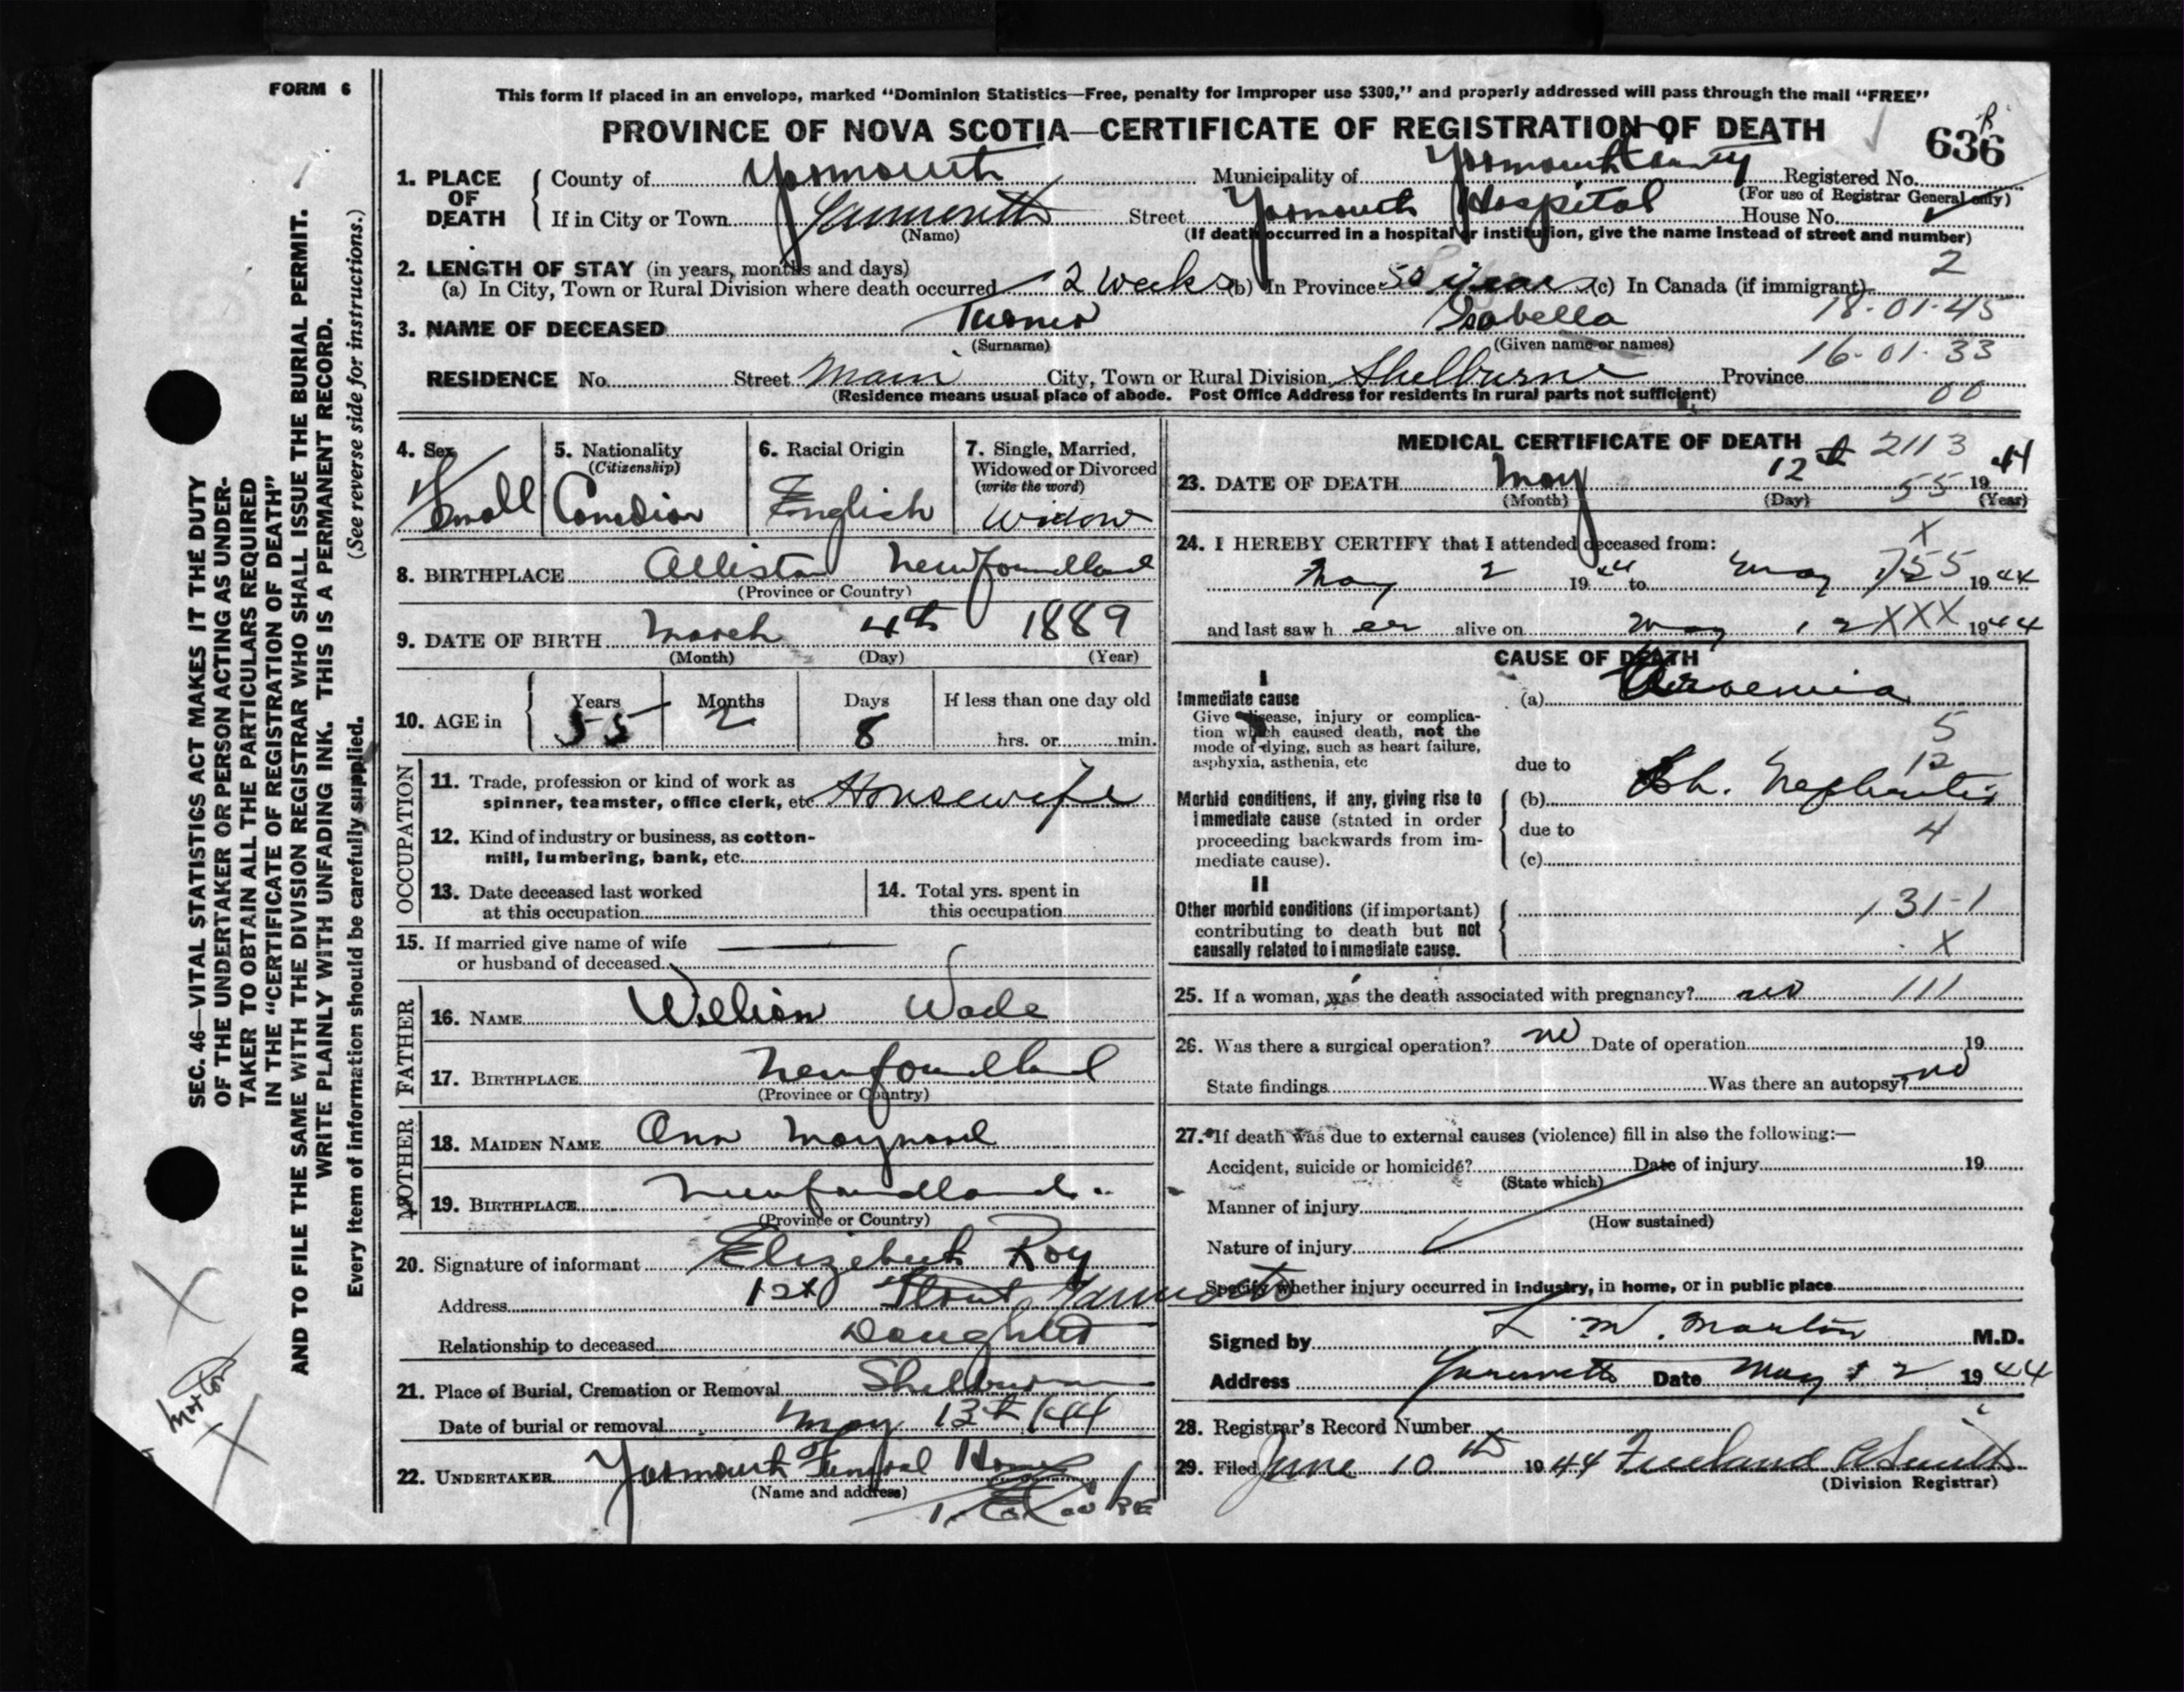 FORM 6
This form if placed in an envelope, marked "Dominion Statistics—Free, penalty for improper use $300," and properly addressed will pass through the mail "FREE"
PROVINCE OF NOVA SCOTIA—CERTIFICATE OF REGISTRATION OF DEATH
636
1. PLACE OF DEATH { County of Yarmouth Municipality of Yarmouth County Registered No.
(For use of Registrar General only)
If in City or Town Yarmouth Street Yarmouth Hospital House No.
(Name) (If death occurred in a hospital or institution, give the name instead of street and number)
2. LENGTH OF STAY (in years, months and days) 2
(a) In City, Town or Rural Division where death occurred 2 Weeks (b) In Province 50 (c) In Canada (if immigrant)
3. NAME OF DECEASED Turner Isabella 18-01-45
(Surname) (Given name or names) 16-01-33
RESIDENCE No. Street Main City, Town or Rural Division Shelburne Province
(Residence means usual place of abode. Post Office Address for residents in rural parts not sufficient) 00
4. Sex
Female
5. Nationality
(Citizenship)
Canadian
6. Racial Origin
English
7. Single, Married, Widowed or Divorced
(write the word)
Widow
8. BIRTHPLACE Newfoundland
(Province or Country)
9. DATE OF BIRTH March 4th 1889
(Month) (Day) (Year)
10. AGE in Years 55 Months 2 Days 8 If less than one day old
hrs. or min.
OCCUPATION
11. Trade, profession or kind of work as
spinner, teamster, office clerk, etc. Housewife
12. Kind of industry or business, as cotton-
mill, lumbering, bank, etc.
13. Date deceased last worked
at this occupation
14. Total yrs. spent in
this occupation
15. If married give name of wife
or husband of deceased
FATHER
16. NAME William Wade
17. BIRTHPLACE Newfoundland
(Province or Country)
MOTHER
18. MAIDEN NAME Ann Maynard
19. BIRTHPLACE Newfoundland
(Province or Country)
20. Signature of informant Elizabeth Roy
Address Yarmouth
Relationship to deceased Daughter
21. Place of Burial, Cremation or Removal Shelburne
Date of burial or removal May 13th/44
22. UNDERTAKER Yarmouth Funeral Home
(Name and address)
MEDICAL CERTIFICATE OF DEATH
2113
23. DATE OF DEATH May 12th 1944
(Month) (Day) (Year)
55
24. I HEREBY CERTIFY that I attended deceased from:
X
May 2 1944 to May 1944
755
and last saw her alive on May 12 1944
XXX
CAUSE OF DEATH
I
Immediate cause
Give disease, injury or complica-
tion which caused death, not the
mode of dying, such as heart failure,
asphyxia, asthenia, etc
(a) Uraemia
5
12
due to
Morbid conditions, if any, giving rise to
immediate cause (stated in order
proceeding backwards from im-
mediate cause).
(b) Ch. Nephritis
due to 4
(c)
II
Other morbid conditions (if important)
contributing to death but not
causally related to immediate cause.
131-1
X
25. If a woman, was the death associated with pregnancy? no 111
26. Was there a surgical operation? no Date of operation 19
State findings Was there an autopsy? no
27. If death was due to external causes (violence) fill in also the following:—
Accident, suicide or homicide? Date of injury 19
(State which)
Manner of injury
(How sustained)
Nature of injury
Specify whether injury occurred in industry, in home, or in public place
Signed by L. M. Morton M.D.
Address Yarmouth Date May 12 1944
28. Registrar's Record Number
29. Filed June 10th 1944 Freeland A Smith
(Division Registrar)
SEC. 46—VITAL STATISTICS ACT MAKES IT THE DUTY
OF THE UNDERTAKER OR PERSON ACTING AS UNDER-
TAKER TO OBTAIN ALL THE PARTICULARS REQUIRED
IN THE "CERTIFICATE OF REGISTRATION OF DEATH"
AND TO FILE THE SAME WITH THE DIVISION REGISTRAR WHO SHALL ISSUE THE BURIAL PERMIT.
WRITE PLAINLY WITH UNFADING INK. THIS IS A PERMANENT RECORD.
Every item of information should be carefully supplied. (See reverse side for instructions.)